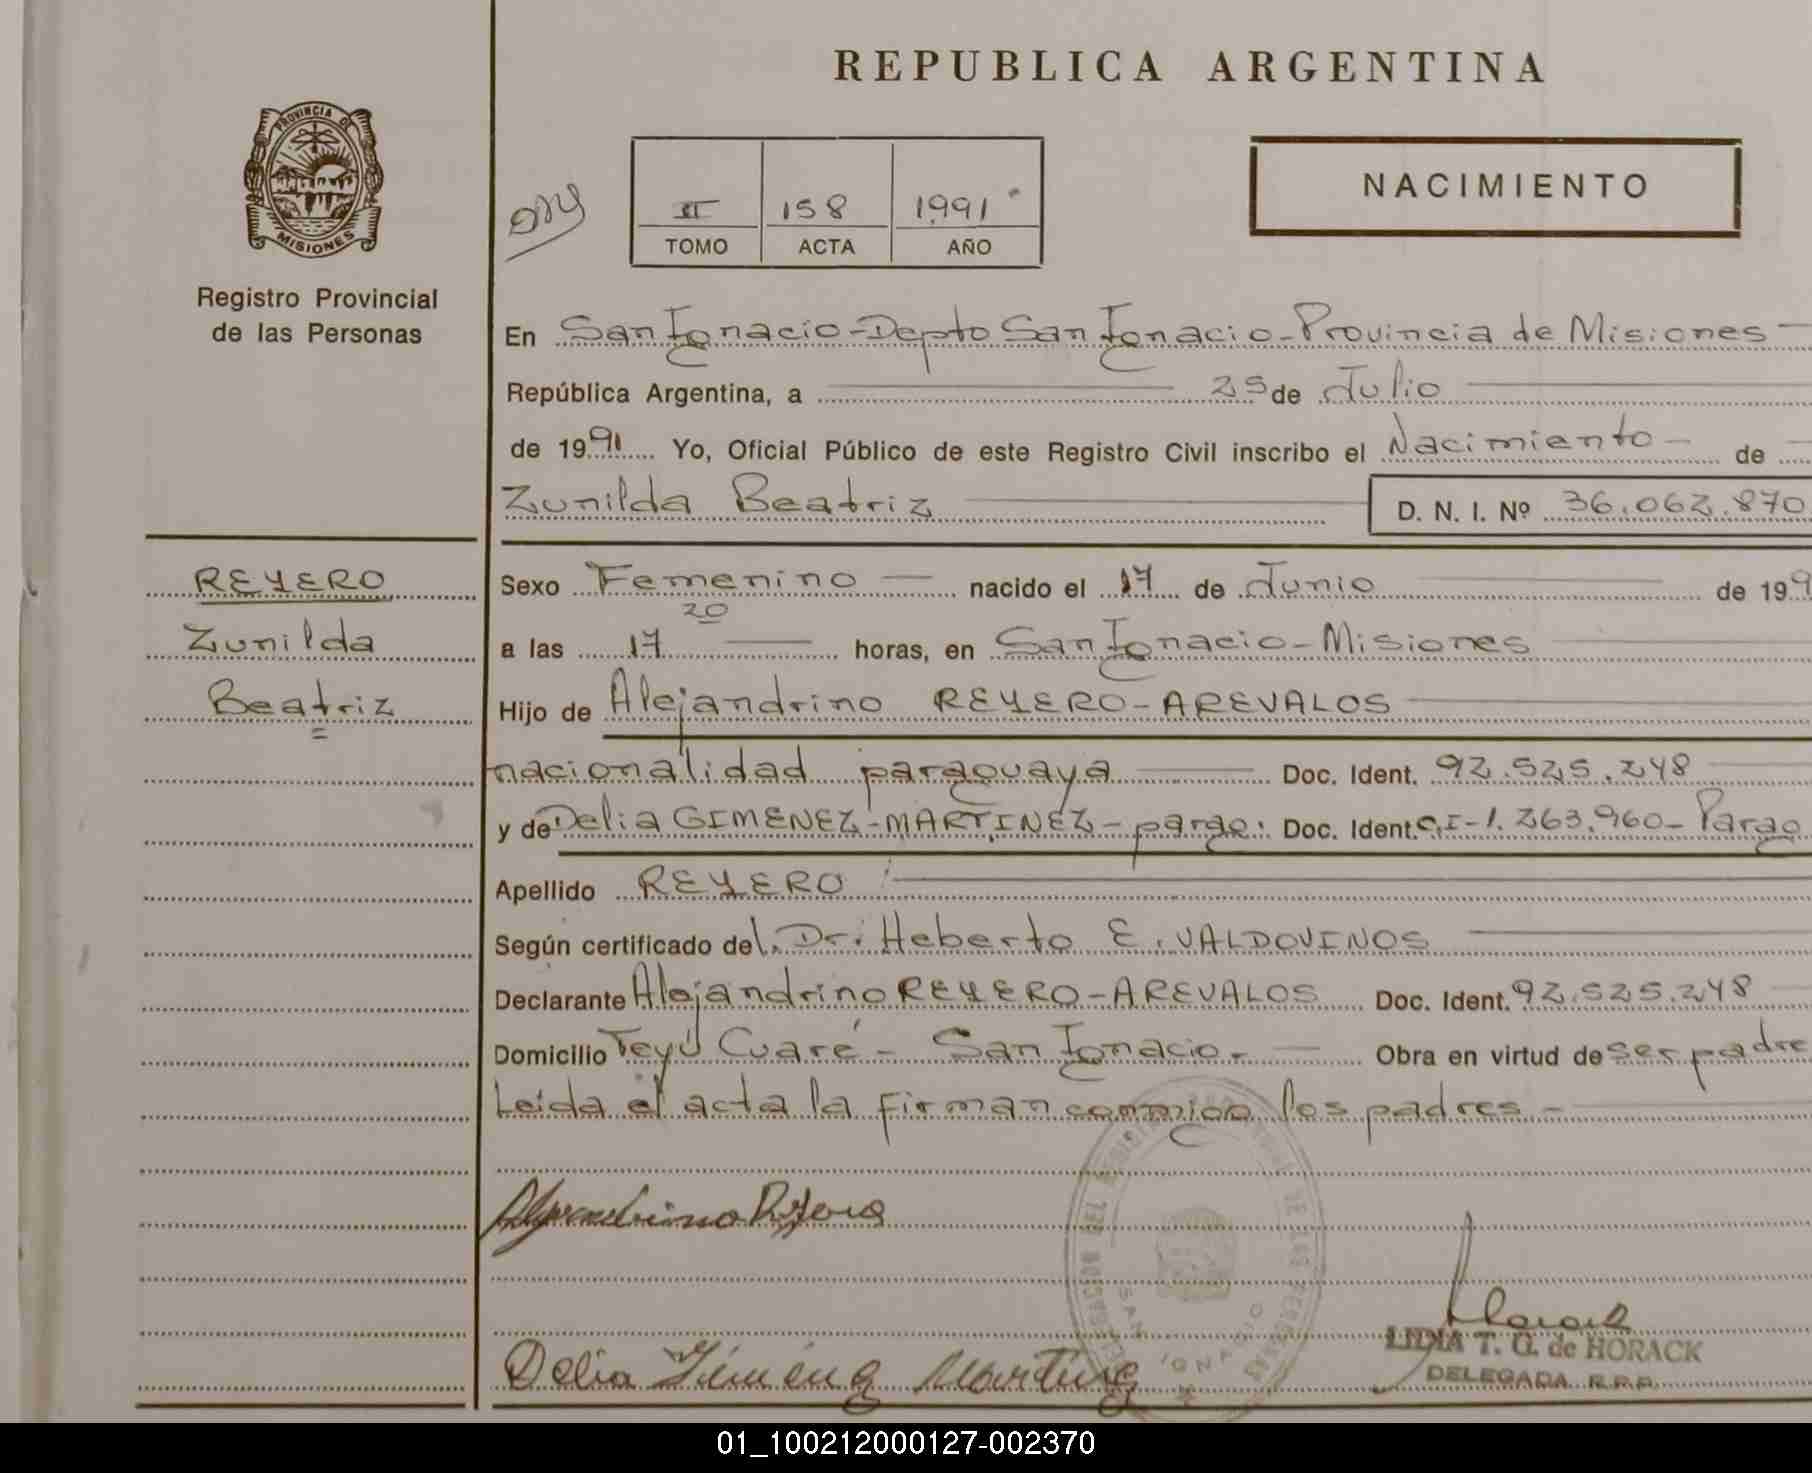 REPUBLICA ARGENTINA
PROVINCIA DE
MISIONES
Registro Provincial
de las Personas
II 158 1991
TOMO ACTA AÑO
NACIMIENTO
En San Ignacio-Depto San Ignacio-Provincia de Misiones-
República Argentina, a 25 de Julio
de 1991 Yo, Oficial Público de este Registro Civil inscribo el Nacimiento- de
Zunilda Beatriz D. N. I. Nº 36.062.870
REYERO
Zunilda
Beatriz
Sexo Femenino nacido el 17 de Junio de 199
a las 17 20 horas, en San Ignacio-Misiones
Hijo de Alejandrino REYERO-AREVALOS
nacionalidad paraguaya Doc. Ident. 92.525.248
y de Delia GIMENEZ-MARTINEZ-parag: Doc. Ident. C.I-1.263.960-Parag
Apellido REYERO
Según certificado del. Dr: Heberto E. VALDOVINOS
Declarante Alejandrino REYERO-AREVALOS Doc. Ident. 92.525.248
Domicilio Teyú Cuaré- San Ignacio.- Obra en virtud de ser padre
Leida el acta la firman conmigo los padres-
Alejandrino Reyero
SAN IGNACIO
Delia Jiménez Martínez
LIDIA T. G. de HORACK
DELEGADA R.P.P.
01_100212000127-002370